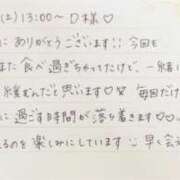 (土) 13:00〜 D様♡
に ありがとうございます!! 今回も
また 食べ過ぎちゃってたけど、一緒に
縁むんだと思います♡ 毎回だけ
に過ごす時間が 落ち着きます♡
るのを 楽しみにしています 早く会え